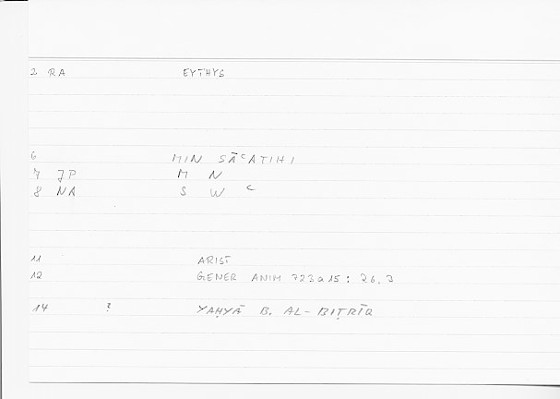 2 RA EYTHYS
6 MIN SĀʿATIHI
7 JP M N
8 NA S W ʿ
11 ARIST
12 GENER ANIM 723a15 : 26,3
14 ? YAḤYĀ B. AL-BIṬRĪQ